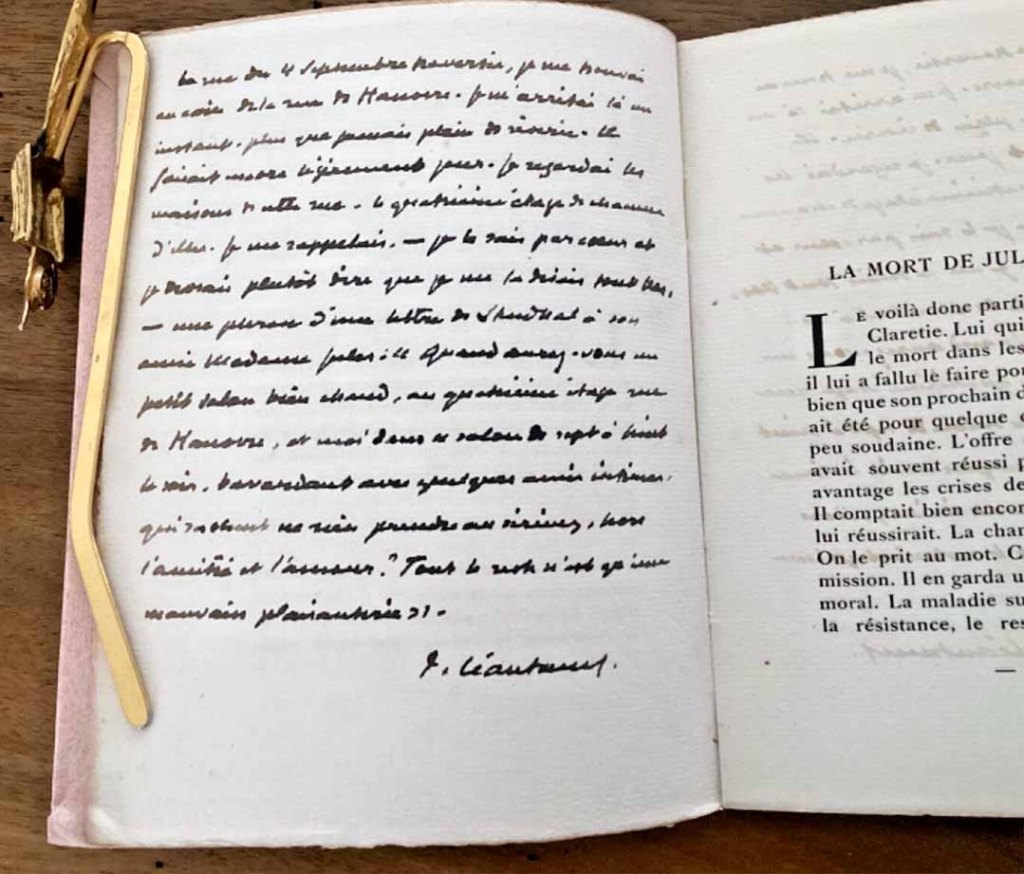 La rue du 4 Septembre traversée, je me trouvai
au coin de la rue de Hanovre. Je m'arrêtai là un
instant, plus que jamais plein de rêverie. Il
faisait encore légèrement jour. Je regardai les
maisons de cette rue. Le quatrième étage de chacune
d'elles. Je me rappelais, — je le sais par cœur et
je devrais plutôt dire que je me la disais tout bas,
— une phrase d'une lettre de Stendhal à son
amie Madame Jules : « Quand aurez-vous un
petit salon bien chaud, au quatrième étage rue
de Hanovre, et moi dans ce salon de sept à huit
le soir, bavardant avec quelques amis intimes,
qui ne rien prendre au sérieux, hors
l'amitié et l'amour ? Tout le reste n'est qu'une
mauvaise plaisanterie ».
P. Léautaud.
LA MORT DE JUL
LE voilà donc parti
Claretie. Lui qui
le mort dans les
il lui a fallu le faire pou
bien que son prochain d
ait été pour quelque
peu soudaine. L'offre
avait souvent réussi p
avantage les crises de
Il comptait bien encor
lui réussirait. La cha
On le prit au mot. C
mission. Il en garda u
moral. La maladie su
la résistance, le res